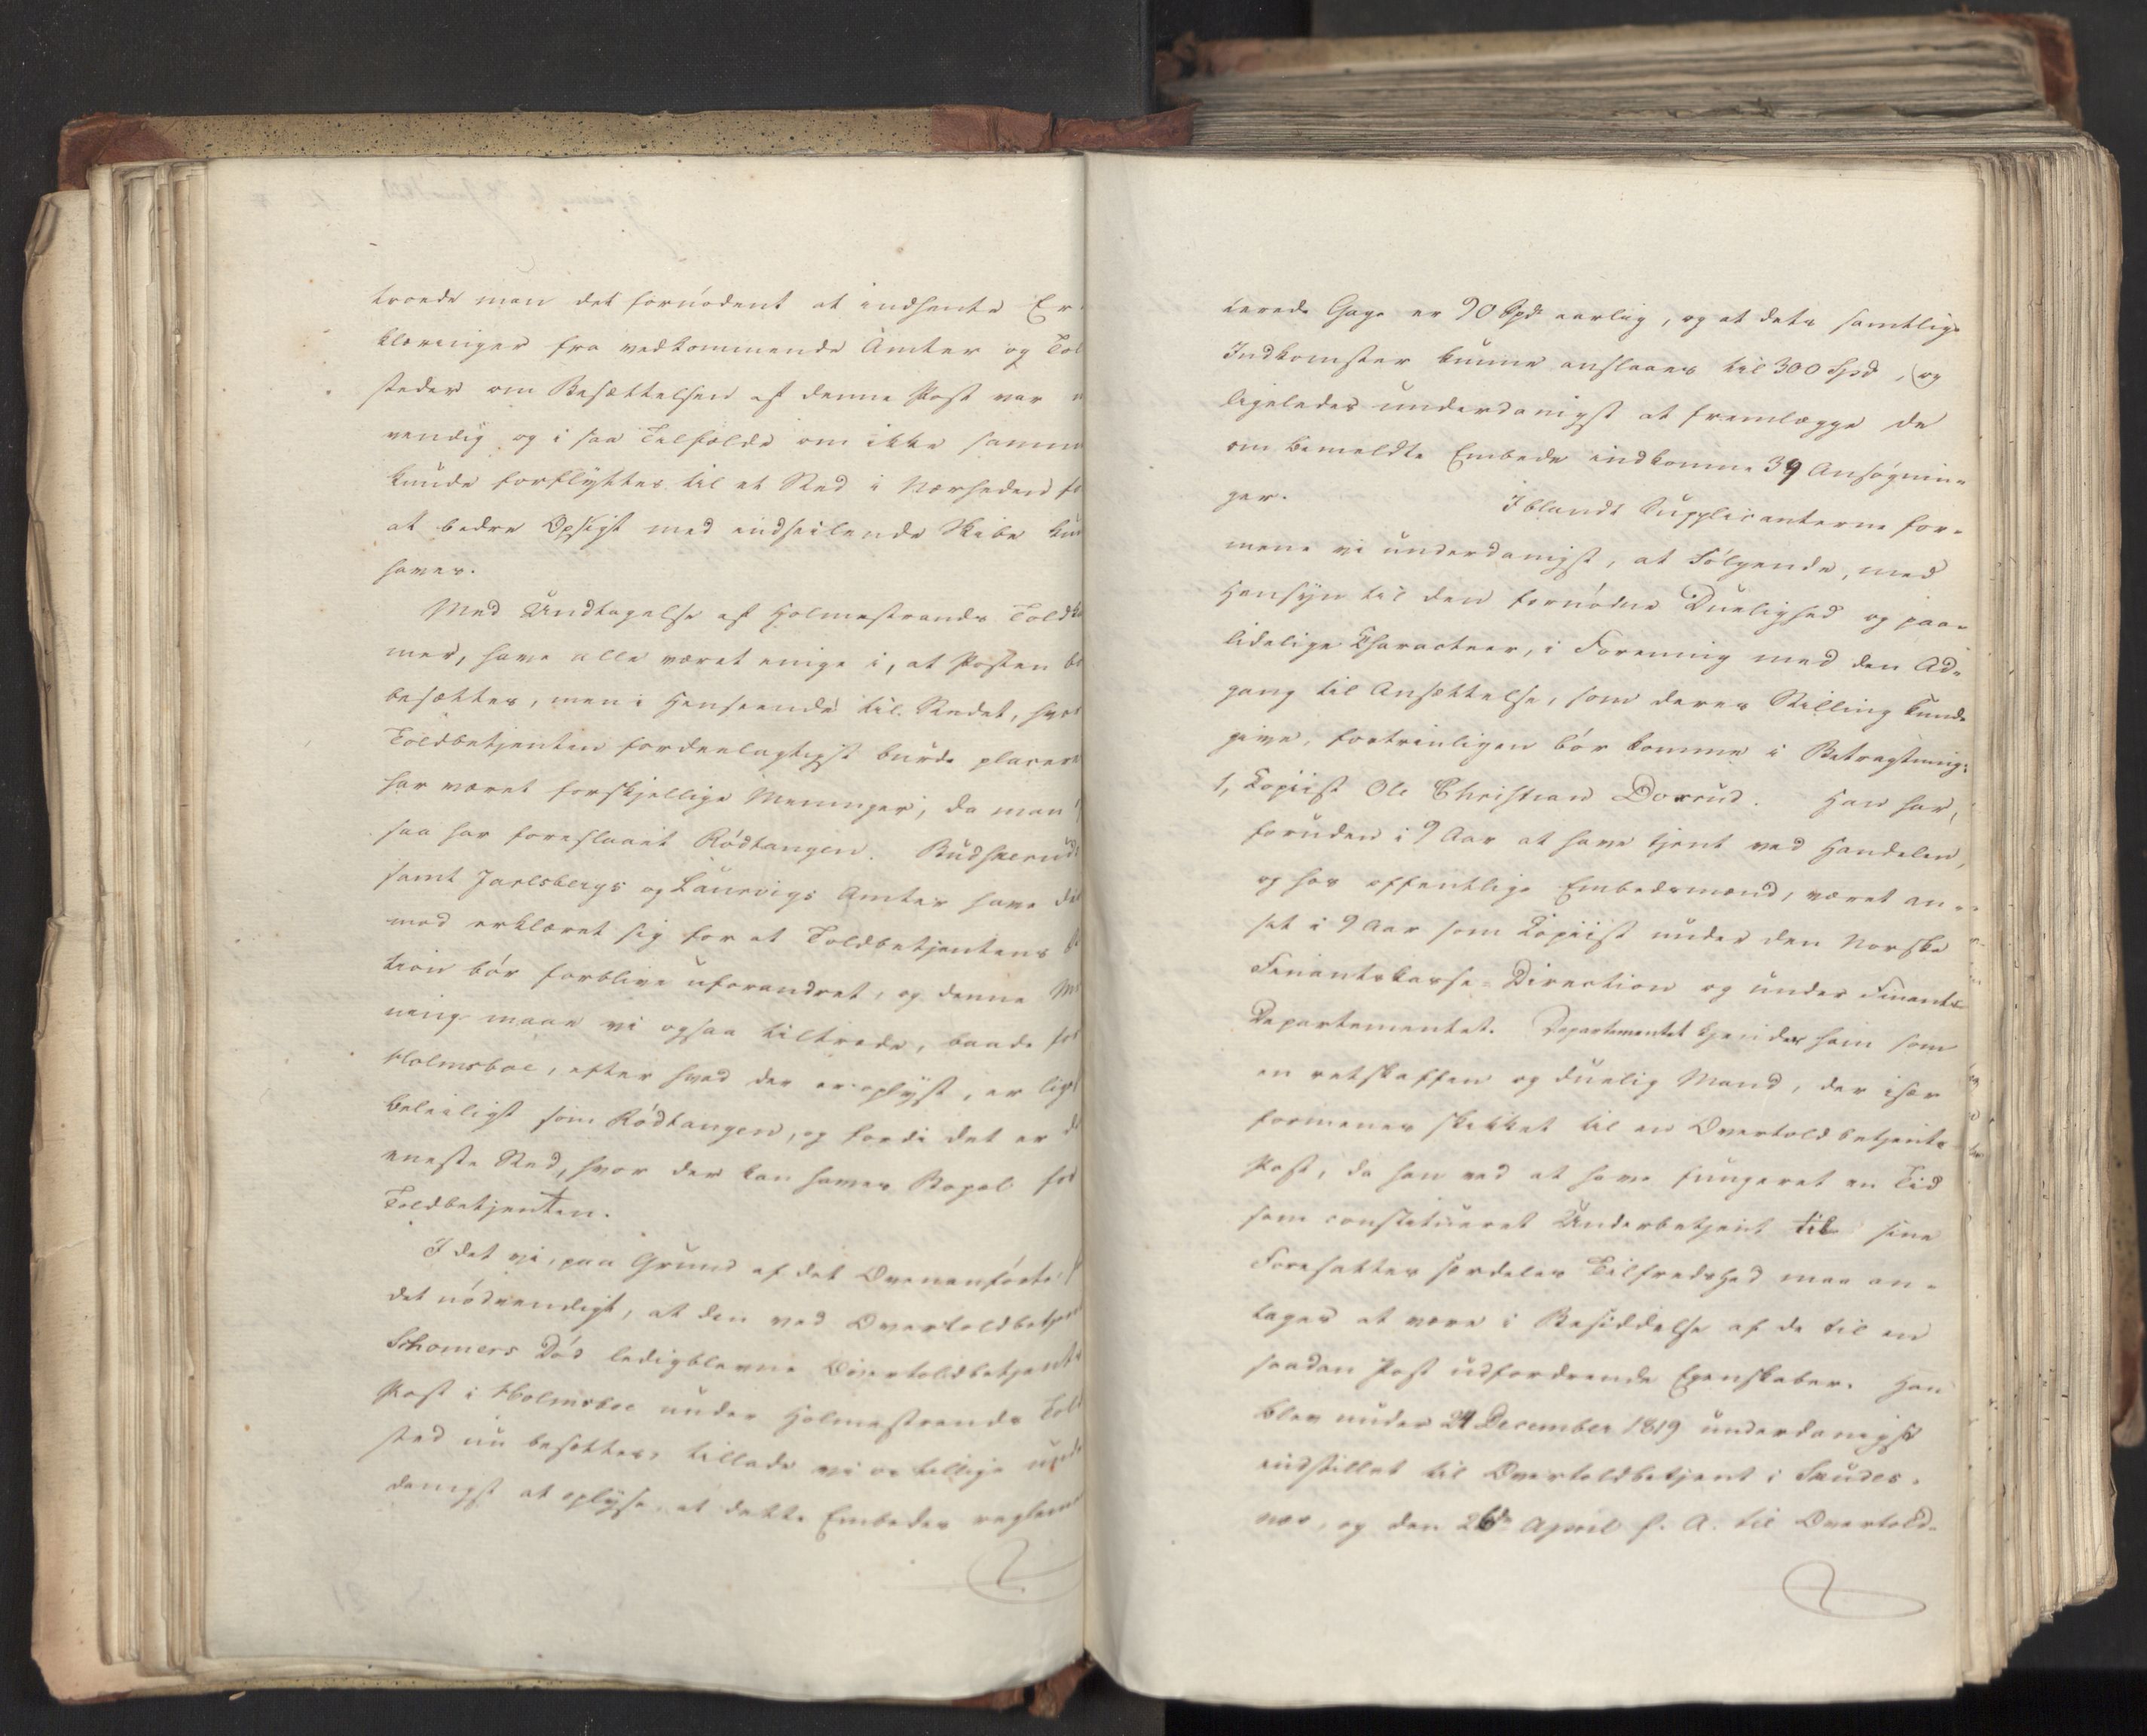 troede man det fornödent at indhente Er-
klæringer fra vedkommende Amter og Tol
steder om Besættelsen af denne Post var n
vendig og i saa Tilfælde om ikke samme
kunde forflyttes til et Sted i Nærheden fo
at bedre Opsigt med indseilende Skibe kun
haves.
Med Undtagelse af Holmestrands Toldka
mer, have alle været enige i, at Posten bö
besættes, men i Henseende til Stedet, hvor
Toldbetjenten fordeelagtigst burde placere
har været forskjellige Meninger, da man
saa har foreslaaet Rödtangen. Budskeruds
samt Jarlsbergs og Laurvigs Amter have de
mod erklæret sig for at Toldbetjentens St
tion bör forblive uforandret, og denne Me
ning maae vi ogsaa tiltræde, baade for
Holmsboe, efter hvad der er oplyst, er lige
beleiligt som Rödtangen, og fordi det er de
eneste Sted, hvor der kan haves Bopæl for
Toldbetjenten.
I det vi, paa Grund af det Ovenanförte,
det nödvendigt, at den ved Overtoldbetjent
Schomers Död ledigblevne Overtoldbetjents
Post i Holmsboe under Holmestrands Told
sted nu besættes, tillade vi os tillige unde
danigst at oplyse, at dette Embedes reglemen
terede Gage er 90 Spd aarlig, og at dets samtlige
Indkomster kunne anslaaes til 300 Spd, og
ligeledes underdanigst at fremlægge de
om bemeldte Embede indkomne 39 Ansögnin-
ger. Iblandt Supplicanterne for-
mene vi underdanigst, at Fölgende, med
Hensyn til den fornödne Duelighed og paa-
lidelige Characteer, i Forening med den Ad-
gang til Ansættelse, som deres Stilling kunde
give, fortrinligen bör komme i Betragtning:
1, Kopiist Ole Christian Dorrud. Han har,
foruden i 9 Aar at have tjent ved Handelen,
og hos offentlige Embedsmænd, været an-
sat i 9 Aar som Kopiist under den Norske
Finantskasse-Direction og under Finants-
Departementet. Departementet kjender ham som
en retskaffen og duelig Mand, der især
formenes skikket til en Overtoldbetjents
Post, da han ved at have fungeret en Tid
som constitueret Underbetjent til sine
Foresattes særdeles Tilfredshed maa an-
tages at være i Besiddelse af de til en
saadan Post udfordrende Egenskaber. Han
blev under 24 December 1819 underdanigst
indstillet til Overtoldbetjent i Skudes-
næs, og den 26de April f. A. til Overtold-